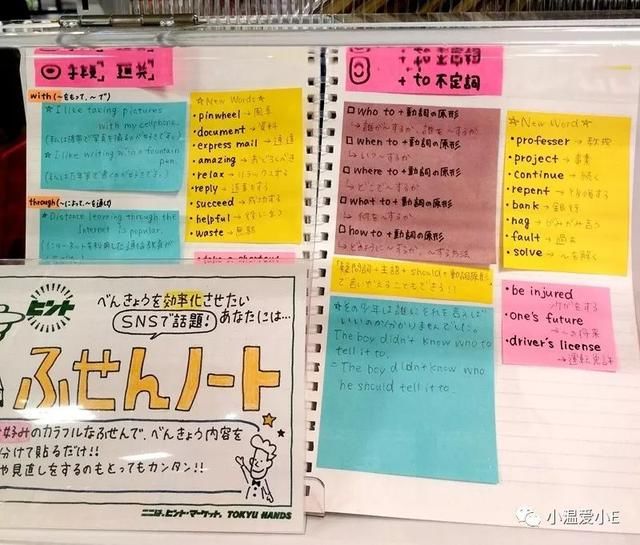 with (~をもって、~で)
☆ I like taking pictures
with my cellphone.
☆ I like writing with a fountain
pen.
through(~によって、~を通じ)
☆ Distance learning through the
Internet is popular.
☆New Words☆
・pinwheel→風車
・document→資料
・express mail→速達
・amazing→おどろくべき
・relax→リラックスする
・reply→返事をする
・succeed→成功する
・helpful→役に立つ
・waste→無駄
+ to 不定詞
□ who to + 動詞の原形
→誰が~するか、誰を~するか
□ when to + 動詞の原形
→いつ~するか
□ where to + 動詞の原形
→どこで~するか
□ what to + 動詞の原形
→何を~するか
□ how to + 動詞の原形
→どのように~するか、~する方法
「疑問詞+主語+should+動詞原形」
で言いかえることもできる!!
☆その少年は誰にそれを言えば
いいのか分かりませんでした。
The boy didn't know who to
tell it to.
=The boy didn't know who
he should tell it to.
☆New Word☆
・professer→教授
・project→事業
・continue→続く
・repent→
・bank→銀行
・nag→
・fault→過失
・solve→~を解く
・be injured
→ケガをする
・one's future
→~の将来
・driver's license
→運転免許
ヒント
べんきょうを効率化させたい
SNSで話題! あなたには…
ふせんノート
好みのカラフルなふせんで、べんきょう内容を
分けて貼るだけ!!
や見直しをするのもとってもカンタン!!
ここは、ヒント・マーケット。 TOKYU HANDS
小温爱小E